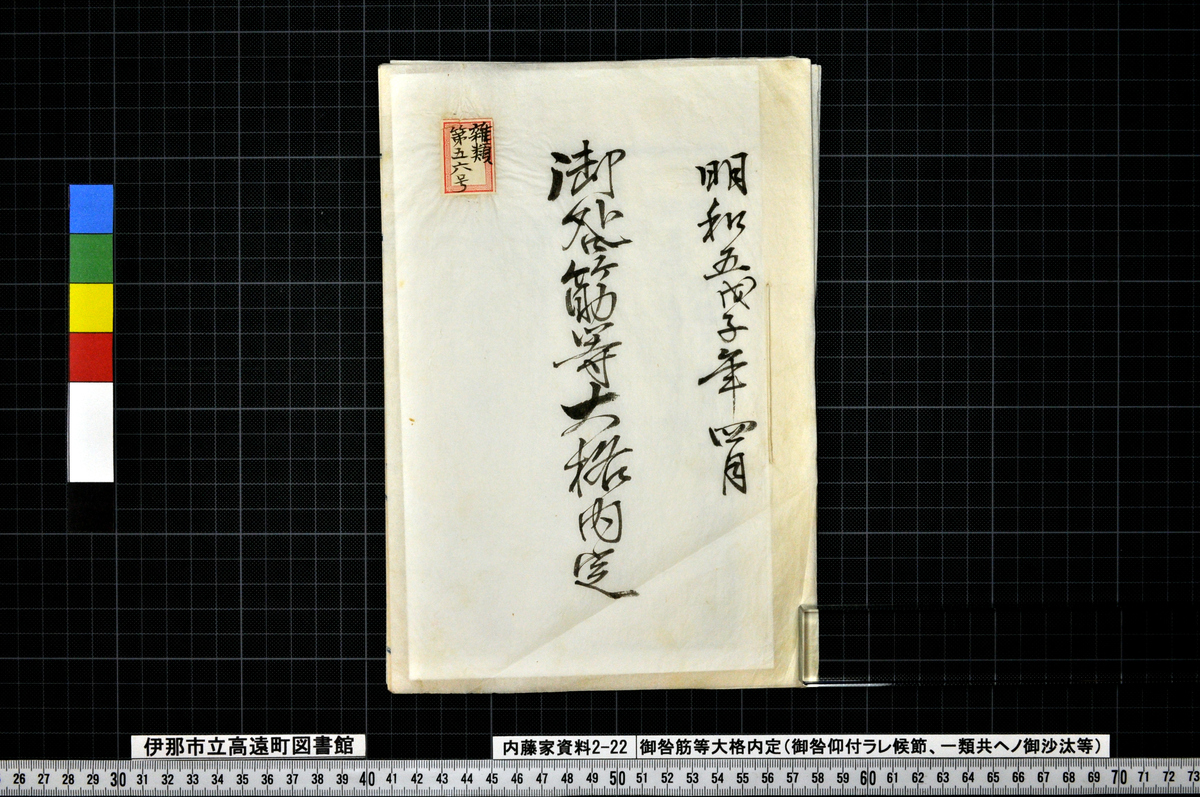 明和五戊子年四月
御咎筋等大格内定
雑類
第五六号
伊那市立高遠町図書館
内藤家資料2-22
御咎筋等大格内定（御咎仰付ラレ候節、一類共ヘノ御沙汰等）
26 27 28 29 30 31 32 33 34 35 36 37 38 39 40 41 42 43 44 45 46 47 48 49 50 51 52 53 54 55 56 57 58 59 60 61 62 63 64 65 66 67 68 69 70 71 72 73